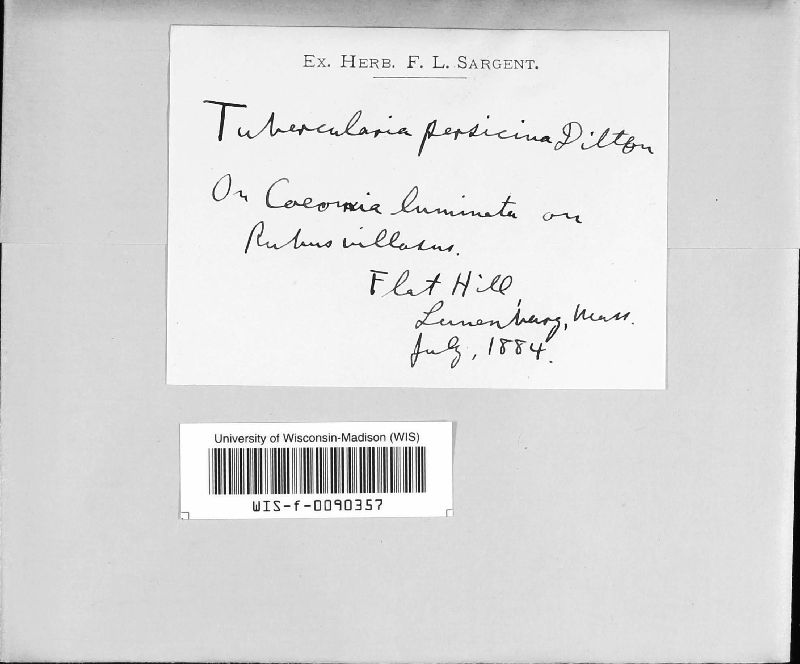 EX. HERB. F. L. SARGENT.
Tubercularia persicina Ditton
On Caeomia luminata on
Rubus villosus.
Flat Hill,
Lunenburg, Mass.
July, 1884.
University of Wisconsin-Madison (WIS)
WIS-f-0090357